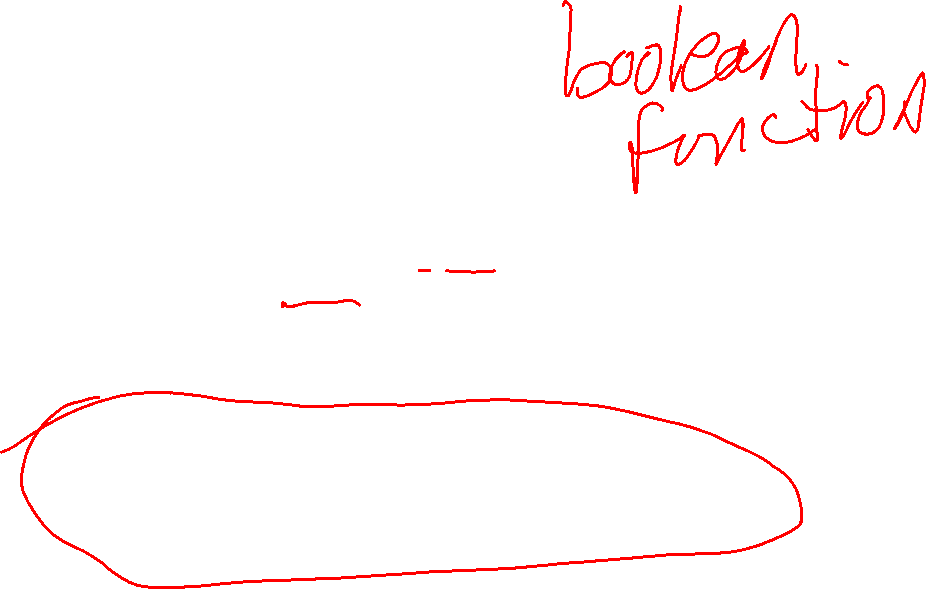 boolean
function